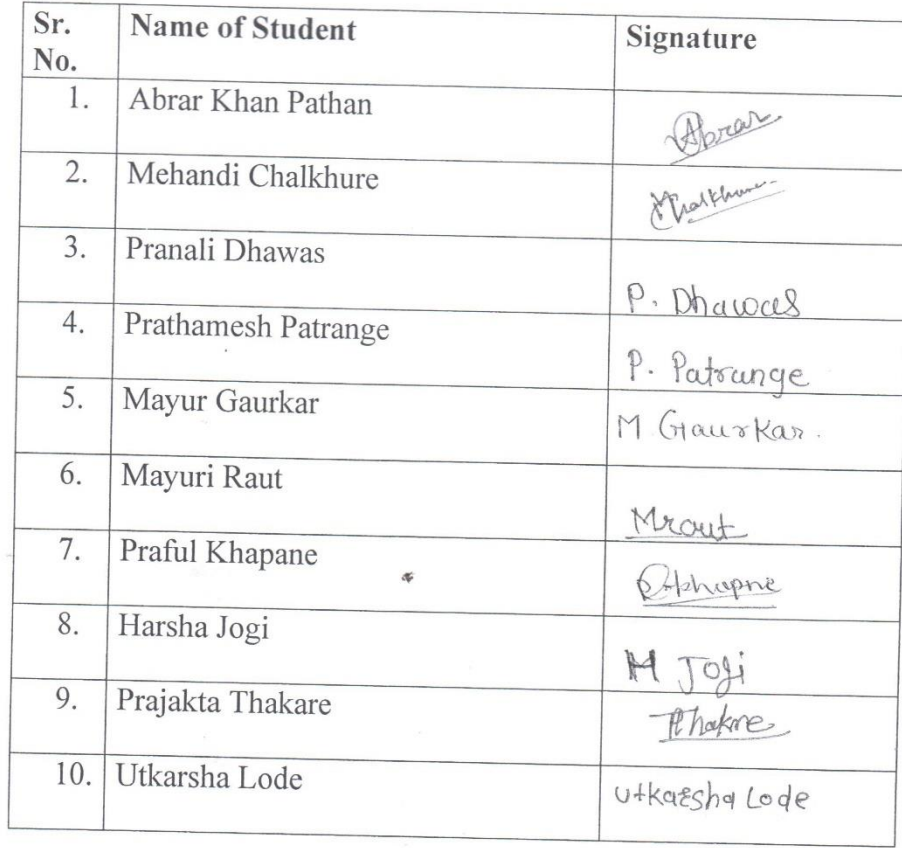 Sr. No. Name of Student Signature
1. Abrar Khan Pathan Abrar
2. Mehandi Chalkhure
3. Pranali Dhawas P. Dhawas
4. Prathamesh Patrange P. Patrange
5. Mayur Gaurkar M Gaurkar.
6. Mayuri Raut Mraut
7. Praful Khapane
8. Harsha Jogi H Jogi
9. Prajakta Thakare
10. Utkarsha Lode Utkarsha Lode